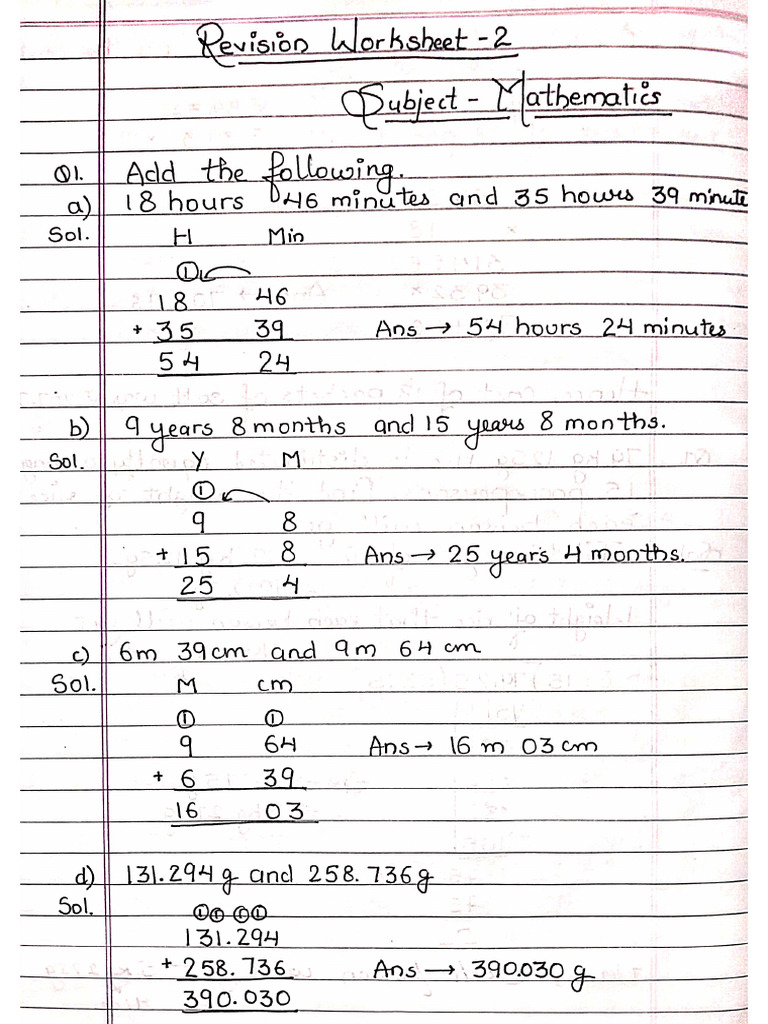 Revision Worksheet - 2
Subject - Mathematics
Q1. Add the following.
a) 18 hours 46 minutes and 35 hours 39 minute
Sol. H Min
①
18 46
+ 35 39 Ans → 54 hours 24 minutes
54 24
b) 9 years 8 months and 15 years 8 months.
Sol. Y M
①
9 8
+ 15 8 Ans → 25 years 4 months.
25 4
c) 6m 39cm and 9m 64 cm
Sol. M cm
① ①
9 64 Ans → 16 m 03 cm
+ 6 39
16 03
d) 131.294 g and 258.736g
Sol.
①① ①①
131.294
+ 258.736 Ans → 390.030 g
390.030